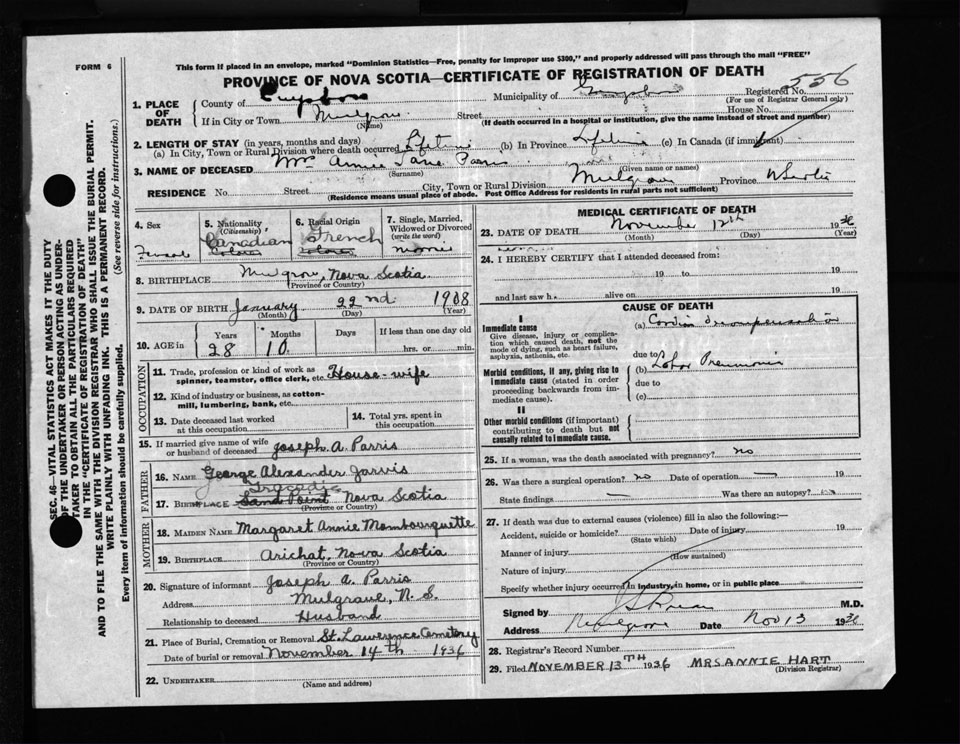 FORM 6
This form if placed in an envelope, marked "Dominion Statistics—Free, penalty for improper use $300," and properly addressed will pass through the mail "FREE"
PROVINCE OF NOVA SCOTIA—CERTIFICATE OF REGISTRATION OF DEATH
Registered No. 556
(For use of Registrar General only)
1. PLACE OF DEATH
County of Guysboro Municipality of Guysboro
If in City or Town Mulgrave Street House No.
(Name) (If death occurred in a hospital or institution, give the name instead of street and number)
2. LENGTH OF STAY (in years, months and days)
(a) In City, Town or Rural Division where death occurred Lifetime (b) In Province Lifetime (c) In Canada (if immigrant)
3. NAME OF DECEASED Mrs Annie Jane Parris
(Surname) (Given name or names)
RESIDENCE No. Street City, Town or Rural Division Mulgrave Province N Scotia
(Residence means usual place of abode. Post Office Address for residents in rural parts not sufficient)
4. Sex
Female
5. Nationality (Citizenship)
Canadian
6. Racial Origin
French
7. Single, Married, Widowed or Divorced (write the word)
8. BIRTHPLACE Mulgrave, Nova Scotia
(Province or Country)
9. DATE OF BIRTH January 22nd 1908
(Month) (Day) (Year)
10. AGE in
Years Months Days If less than one day old
28 10 hrs. or min.
OCCUPATION
11. Trade, profession or kind of work as spinner, teamster, office clerk, etc. House-wife
12. Kind of industry or business, as cotton-mill, lumbering, bank, etc.
13. Date deceased last worked at this occupation
14. Total yrs. spent in this occupation
15. If married give name of wife or husband of deceased Joseph A. Parris
FATHER
16. NAME George Alexander Jarvis
Tracadie
17. BIRTHPLACE Sand Point Nova Scotia
(Province or Country)
MOTHER
18. MAIDEN NAME Margaret Annie Mombourquette
19. BIRTHPLACE Arichat, Nova Scotia
(Province or Country)
20. Signature of informant Joseph A. Parris
Address Mulgrave, N. S.
Relationship to deceased Husband
21. Place of Burial, Cremation or Removal St. Lawrence Cemetery
Date of burial or removal November 14th 1936
22. UNDERTAKER
(Name and address)
MEDICAL CERTIFICATE OF DEATH
23. DATE OF DEATH November 12th 1936
(Month) (Day) (Year)
24. I HEREBY CERTIFY that I attended deceased from:
19 to 19
and last saw h alive on 19
CAUSE OF DEATH
I
Immediate cause
Give disease, injury or complication which caused death, not the mode of dying, such as heart failure, asphyxia, asthenia, etc.
(a) Cardiac
due to
Morbid conditions, if any, giving rise to immediate cause (stated in order proceeding backwards from immediate cause).
(b) Lobar Pneumonia
due to
(c)
II
Other morbid conditions (if important) contributing to death but not causally related to immediate cause.
25. If a woman, was the death associated with pregnancy? no
26. Was there a surgical operation? no Date of operation 19
State findings Was there an autopsy?
27. If death was due to external causes (violence) fill in also the following:—
Accident, suicide or homicide? Date of injury 19
(State which)
Manner of injury
(How sustained)
Nature of injury
Specify whether injury occurred in industry, in home, or in public place
Signed by M.D.
Address Mulgrave Date Nov 13 1936
28. Registrar's Record Number
29. Filed NOVEMBER 13TH 1936 MRS ANNIE HART
(Division Registrar)
SEC. 46—VITAL STATISTICS ACT MAKES IT THE DUTY
OF THE UNDERTAKER OR PERSON ACTING AS UNDER-
TAKER TO OBTAIN ALL THE PARTICULARS REQUIRED
IN THE "CERTIFICATE OF REGISTRATION OF DEATH"
AND TO FILE THE SAME WITH THE DIVISION REGISTRAR WHO SHALL ISSUE THE BURIAL PERMIT.
WRITE PLAINLY WITH UNFADING INK. THIS IS A PERMANENT RECORD.
Every item of information should be carefully supplied. (See reverse side for instructions.)